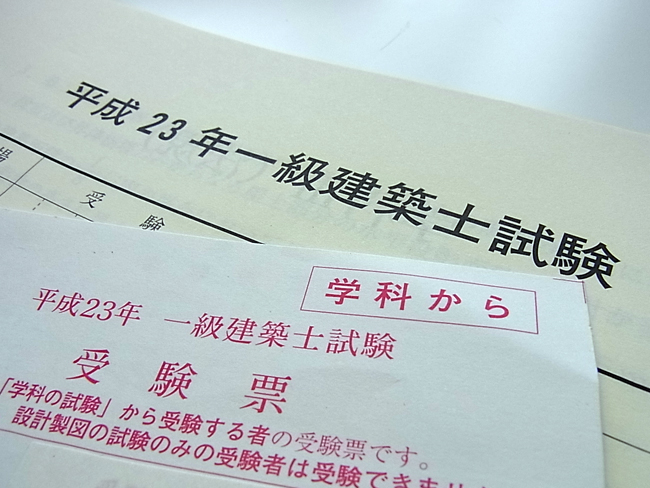 平成23年一級建築士試験
場 受験
学科から
平成23年 一級建築士試験
受験票
「学科の試験」から受験する者の受験票です。
設計製図の試験のみの受験者は受験できませ